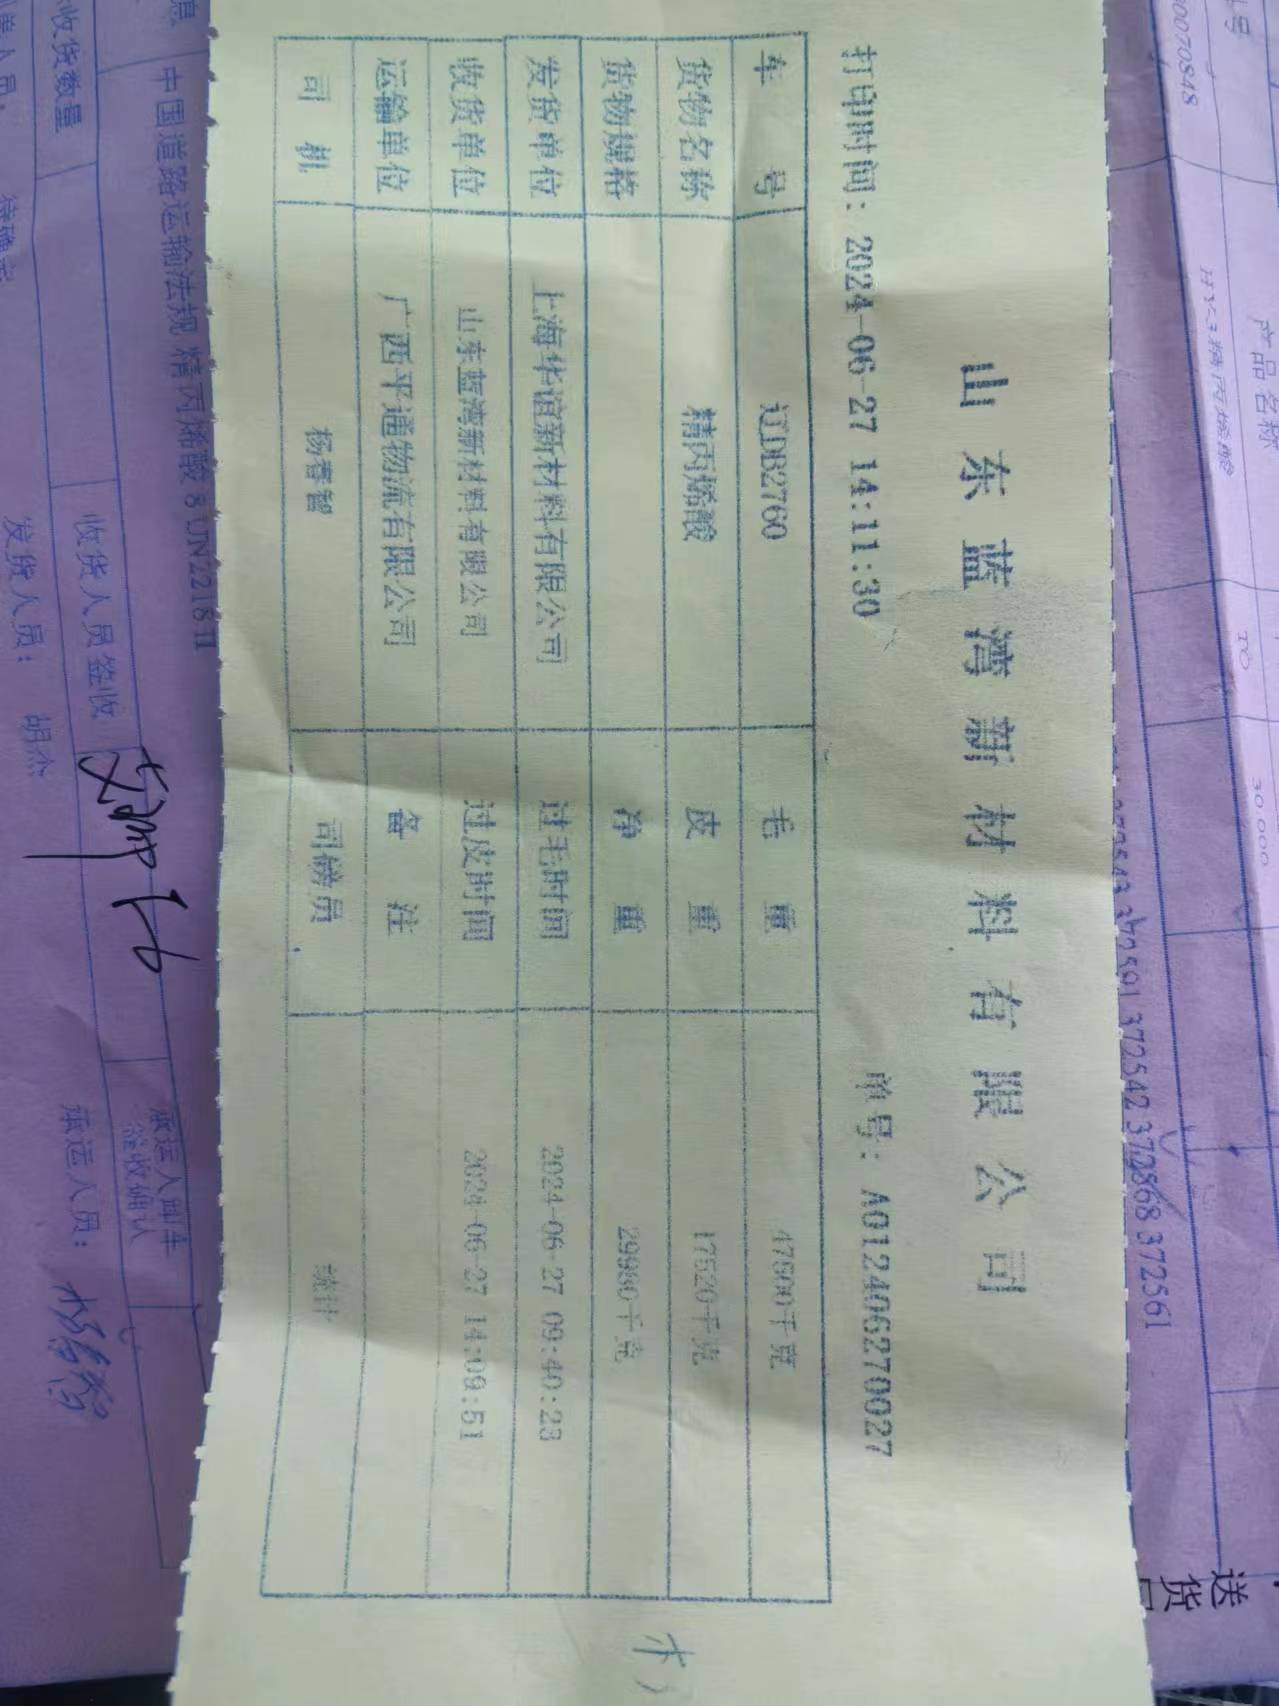 山东蓝湾新材料有限公司
打印时间: 2024-06-27 14:11:30 单号: A012406270027
车号 辽DB2760 毛重 47500千克
货物名称 精丙烯酸 皮重 17520千克
货物规格 净重 29980千克
发货单位 上海华谊新材料有限公司 过毛时间 2024-06-27 09:40:23
收货单位 山东蓝湾新材料有限公司 过皮时间 2024-06-27 14:09:51
运输单位 广西平通物流有限公司 备注
司机 杨春智 司磅员 统计
号 产品名称
00070848 HY-3精丙烯酸 TO 30000
372591 372542 372868 372561
送货
中国道路运输法规 精丙烯酸 8 UN2218 II
收货数量 收货人员签收 承运人卸车
签收确认
发货人员: 胡杰 承运人员: